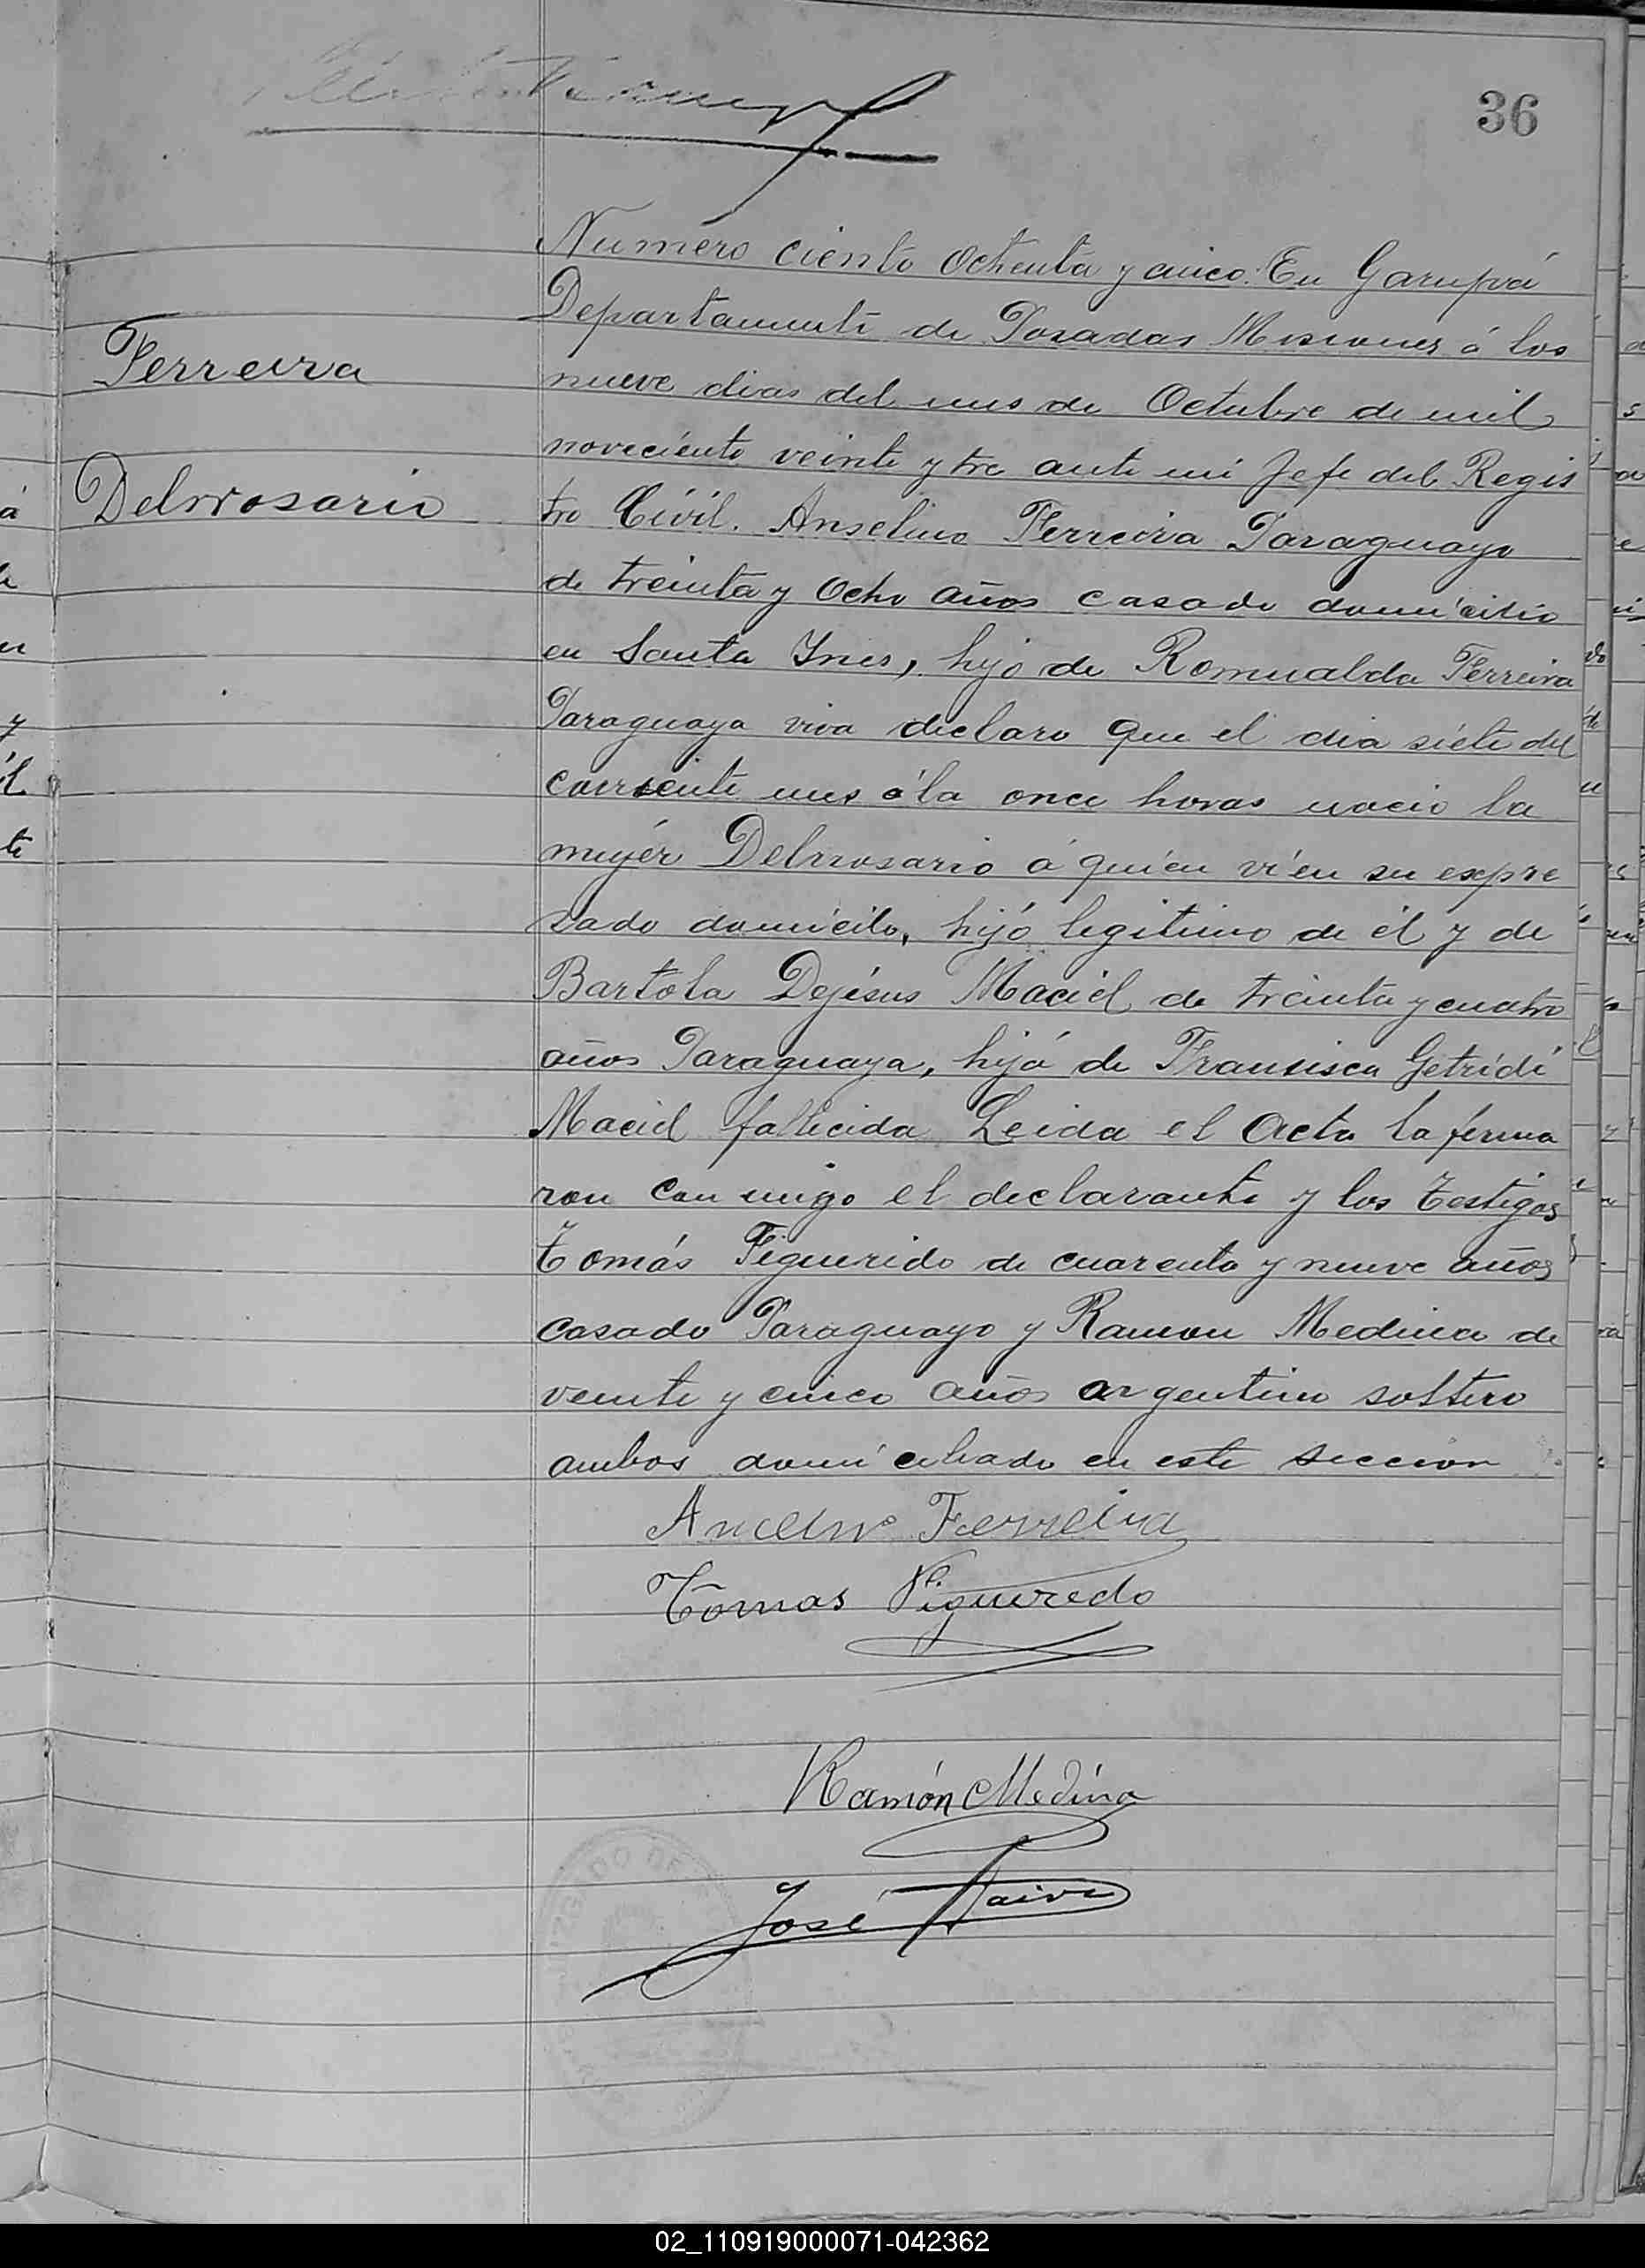 36
Número ciento ochenta y cinco. En Garupá
Departamento de Posadas Misiones á los
Ferreira
nueve dias del mes de Octubre de mil
noveciento veinte y tre ante mi Jefe del Regis
Delrrosario
tro Civil. Anselmo Ferreira Paraguayo
de treinta y ocho años casado domicilio
en Santa Ynes, hijo de Romualda Ferreira
Paraguaya viva declaro que el dia siete del
corriente mes á la once horas nacio la
mujér Delrrosario á quien vi en su expre
sado domicilo, hijó legitimo de él y de
Bartola Dejésus Maciel de treinta y cuatro
años Paraguaya, hijá de Fransisca Getridi
Maciel fallecida Leida el Acta la firma
ron con migo el declarante y los Testigos
Tomás Figuerido de cuarenta y nueve años
casado Paraguayo y Ramon Medina de
veinte y cinco años argentino soltero
ambos domiciliado en este seccion
Ancelmo Ferreira
Tomas Figueredo
Ramón Medina
José Paiva
JUZGADO DE
02_110919000071-042362